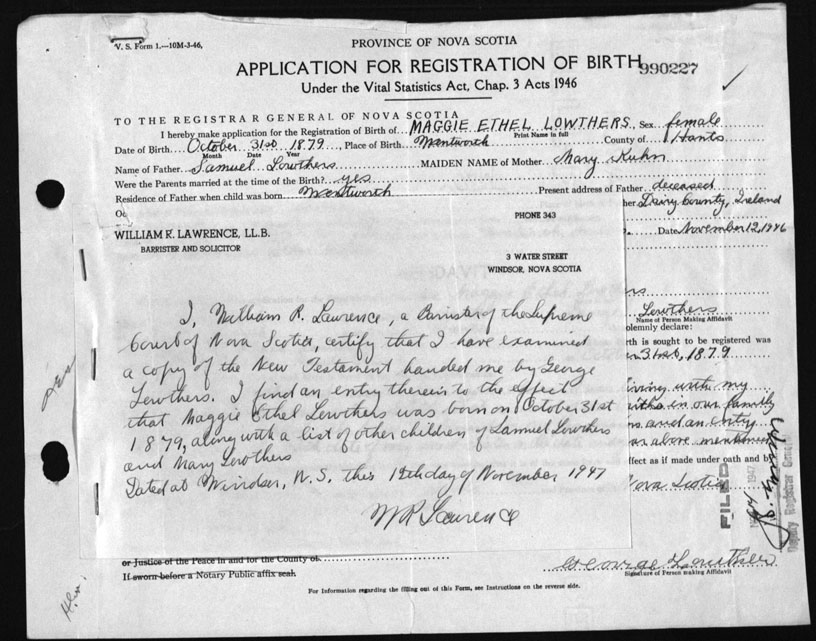 V. S. Form 1.—10M-3-46.
PROVINCE OF NOVA SCOTIA
APPLICATION FOR REGISTRATION OF BIRTH 990227
Under the Vital Statistics Act, Chap. 3 Acts 1946
TO THE REGISTRAR GENERAL OF NOVA SCOTIA
I hereby make application for the Registration of Birth of MAGGIE ETHEL LOWTHERS, Sex female
Print Name in full
Date of Birth October 31st 1879 Place of Birth Wentworth County of Hants
Month Date Year
Name of Father Samuel Lowthers MAIDEN NAME of Mother Mary Kuhn
Were the Parents married at the time of the Birth? yes
Residence of Father when child was born Wentworth Present address of Father deceased
Oc
her County, Ireland
Date November 12, 1946
PHONE 343
WILLIAM R. LAWRENCE, LL.B.
BARRISTER AND SOLICITOR
3 WATER STREET
WINDSOR, NOVA SCOTIA
I, William R. Lawrence, a Barrister of the Supreme
Court of Nova Scotia, certify that I have examined
a copy of the New Testament handed me by George
Lowthers. I find an entry therein to the effect
that Maggie Ethel Lowthers was born on October 31st
1879, along with a list of other children of Samuel Lowthers
and Mary Lowthers
Dated at Windsor, N.S. this 12th day of November 1947
W R Lawrence
Lowthers
Name of Person Making Affidavit
olemnly declare:
rth is sought to be registered was
31st, 1879
living with my
in our family
and an entry
as above
ffect as if made under oath and by
Nova Scotia
FILED
1947
Deputy Registrar General
or Justice of the Peace in and for the County of
If sworn before a Notary Public affix seal.
George Lowthers
Signature of Person making Affidavit
For Information regarding the filling out of this Form, see Instructions on the reverse side.